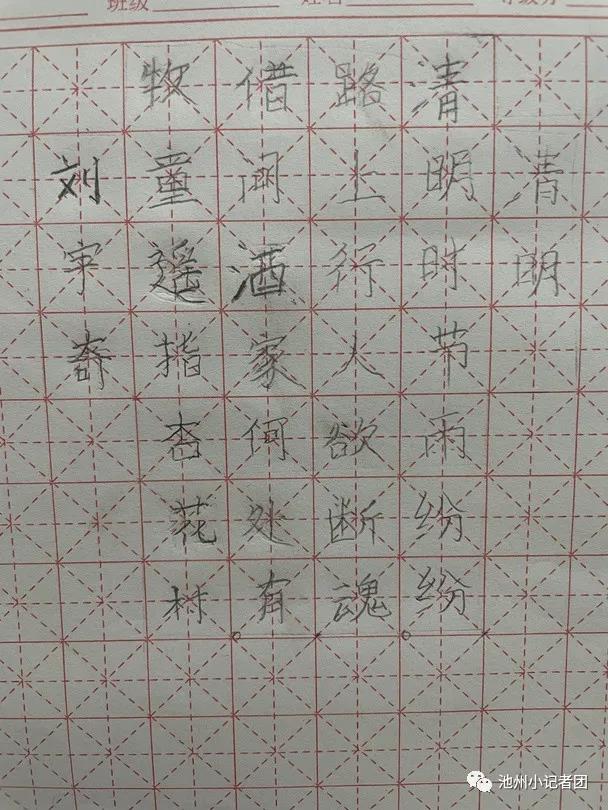 班级 姓名
清明
清明时节雨纷纷
路上行人欲断魂
借问酒家何处有
牧童遥指杏花村
刘宇奇
池州小记者团